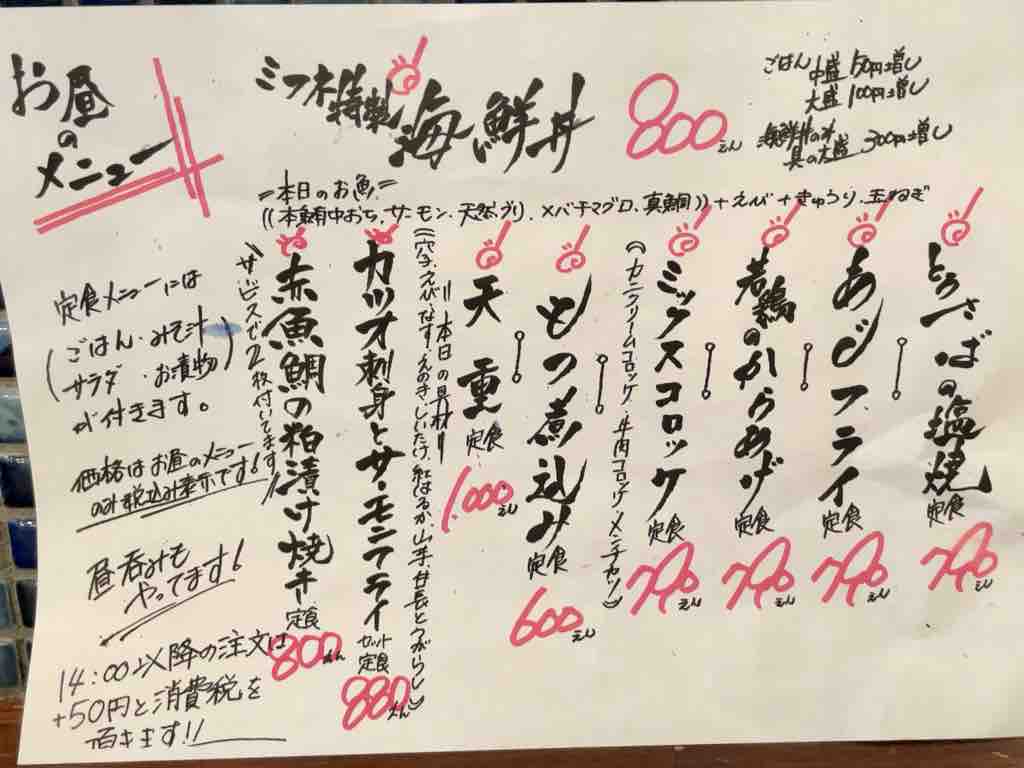 お昼
の
メニュー
ミフネ特製 海鮮丼 800えん
ごはん 中盛 50円増し
大盛 100円増し
海鮮丼のみ
具の大盛 300円増し
=本日のお魚=
((本鮪中おち、サーモン、天然ブリ、メバチマグロ、真鯛))+えび+きゅうり、玉ねぎ
とろさばの塩焼 定食
あじフライ 定食 790えん
若鶏のからあげ 定食 790えん
ミックスコロッケ 定食 790えん
(カニクリームコロッケ・牛肉コロッケ・メンチカツ)
もつ煮込み 定食 600えん
天重 定食 1,000えん
=本日の具材=
((穴子、えび、なす、えのき、しいたけ、紅はるか、山芋、甘長とうがらし))
カツオ刺身とサーモンフライ セット定食 880えん
赤魚鯛の粕漬け焼き 定食 800えん
サービスで2枚付いてます!
定食メニューには
(ごはん・みそ汁
サラダ・お漬物)
が付きます。
価格はお昼のメニュー
のみ税込み表示です!
昼呑みも
やってます!
14:00以降の注文は
+50円と消費税を
頂きます!!